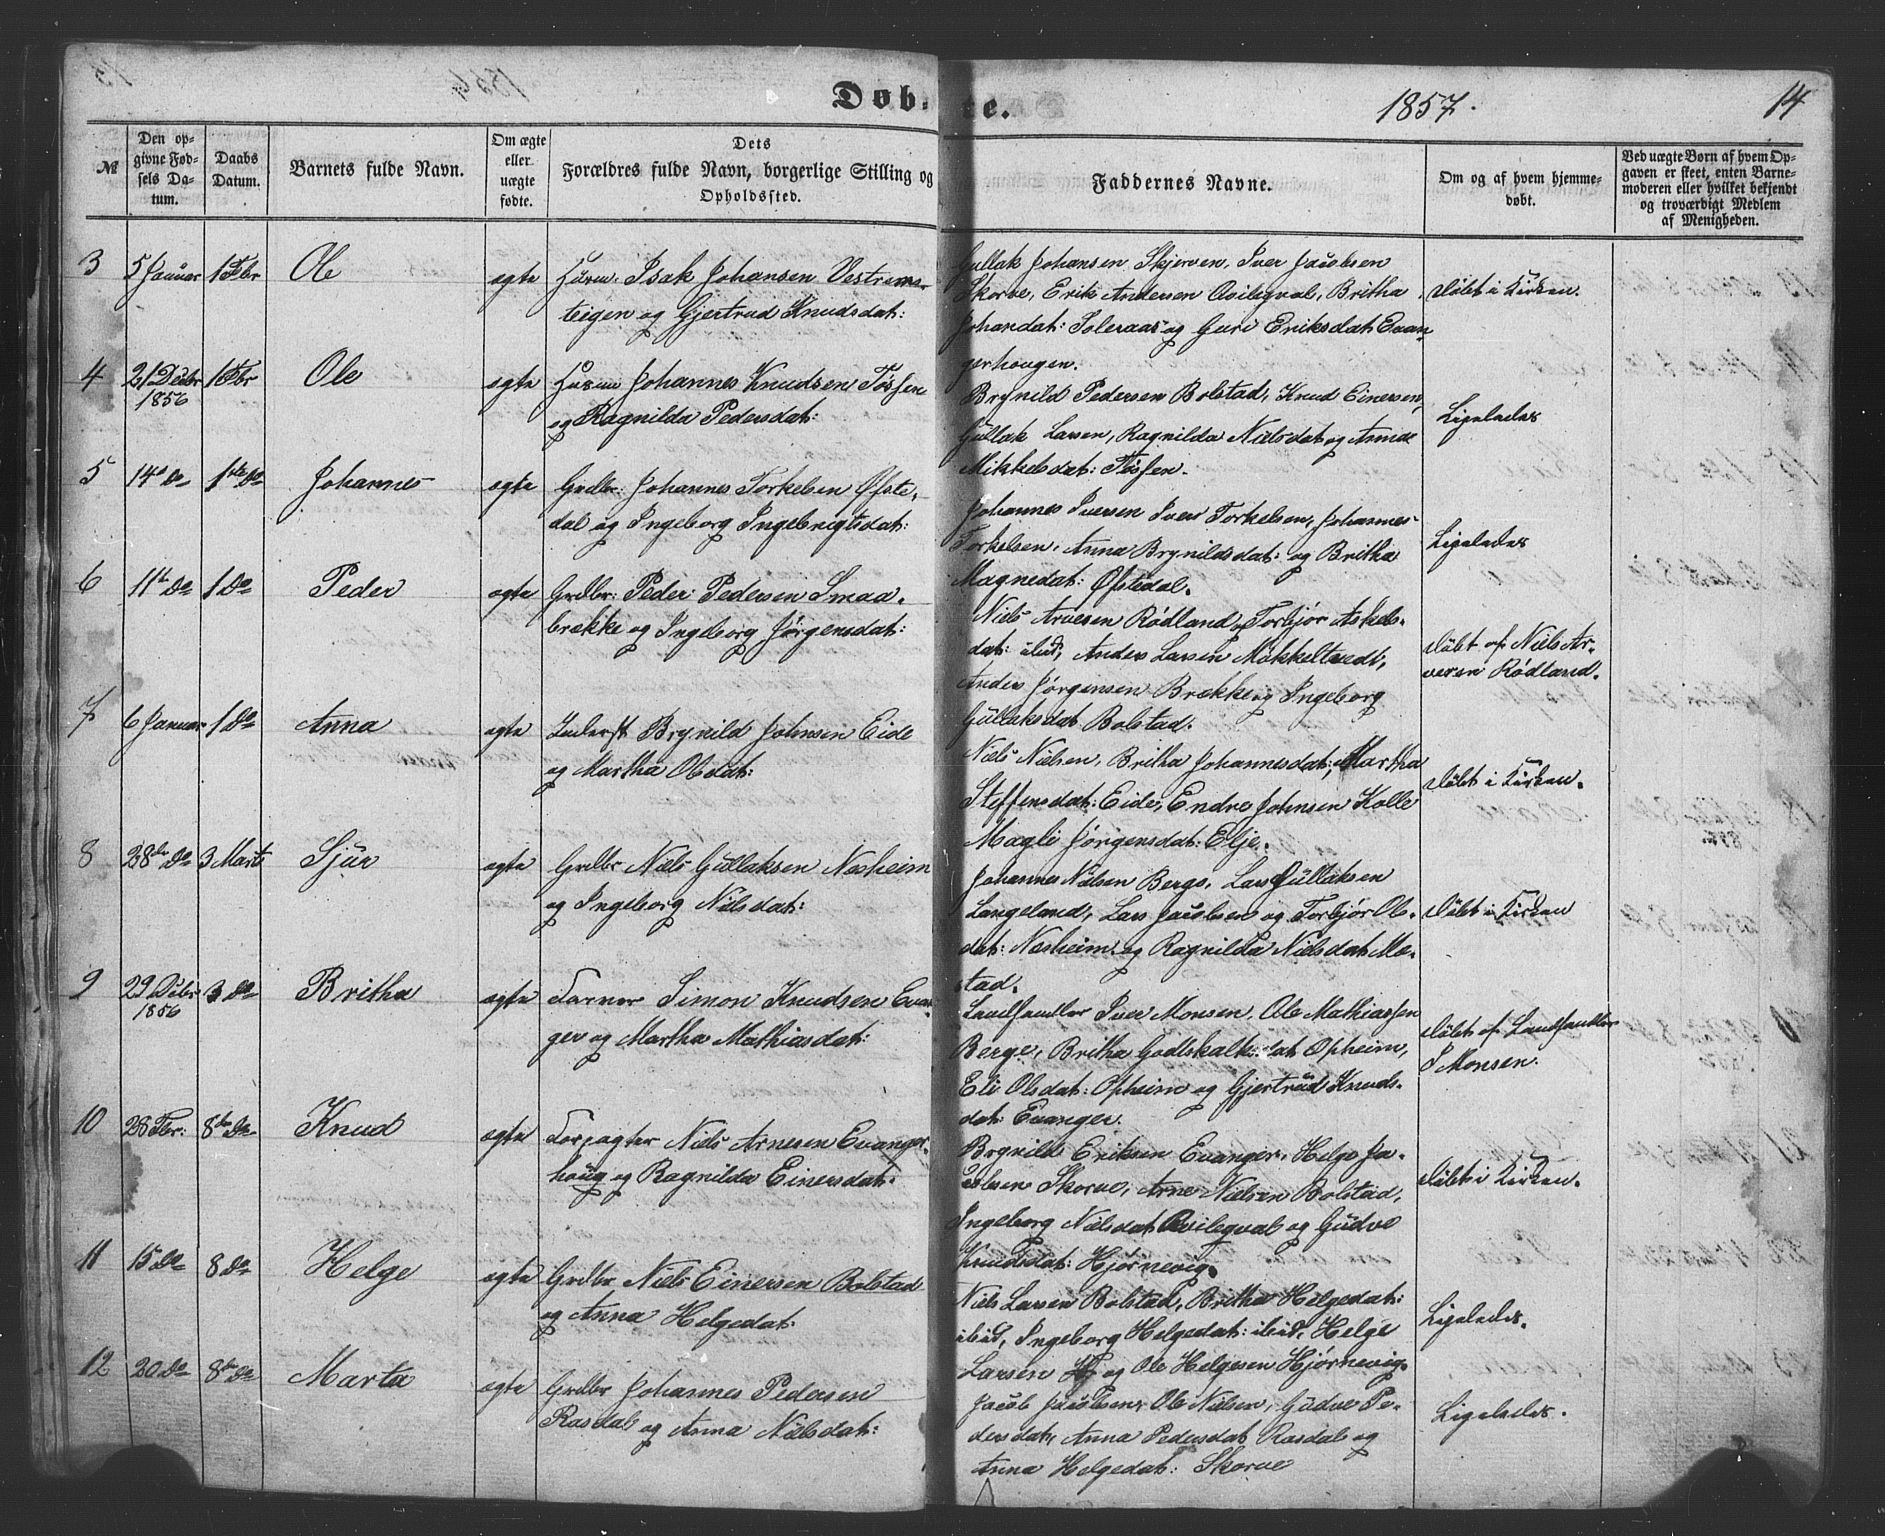 Døbte.
1857.
14
№
Den opgivne Fødsels Datum.
Daabs Datum.
Barnets fulde Navn.
Om ægte eller uægte fødte.
Dets Forældres fulde Navn, borgerlige Stilling og Opholdssted.
Faddernes Navne.
Om og af hvem hjemmedøbt.
Ved uægte Børn af hvem Opgaven er skeet, enten Barnemoderen eller hvilket bekjendt og troværdigt Medlem af Menigheden.
3 5 Januar 1 Febr Ole ægte Huusm. Isak Johansen Vestrems-
teigen og Gjertrud Knudsdat:
Gullak Johansen Skjerven, Iver Jacobsen
Skorve, Erik Andersen Qvilegval, Britha
Johandat: Toleraas og Guri Eriksdat Evan-
gerhougen.
Døbt i Kirken.
4 21 Decbr 1856 1 Febr Ole ægte Huusm Johannes Knudsen Tøssen
og Ragnilda Pedersdat:
Brynild Pedersen Bolstad, Knud Einersen,
Gullak Larsen, Ragnilda Nielsdat og Anna
Mikkelsdat: Tøssen.
Ligeledes
5 14 do 1ste do Johannes ægte Grdbr: Johannes Torkelsen Øfste-
dal og Ingeborg Ingebrigtsdat:
Johannes Iversen Iver Torkelsen, Johannes
Torkelsen, Anna Brynildsdat: og Britha
Magnedat: Øfstedal.
Ligeledes
6 11te do 1 do Peder ægte Grdbr: Peder Pedersen Smaa-
brække og Ingeborg Jørgensdat:
Niels Arvesen Rødland og Torbjør Askels-
dat: ibid, Anders Larsen Møkkeltvedt,
Anders Jørgensen Brække og Ingeborg
Gullaksdat Bolstad.
Døbt af Niels Ar-
vesen Rødland.
7 6 Januar 1 do Anna ægte Inderst Brynild Johnsen Eide
og Martha Olsdat:
Niels Nielsen, Britha Johannesdat:, Martha
Steffensdat: Eide, Endre Johnsen Kolle
Magli Jørgensdat: Elje.
Døbt i Kirken.
8 28de do 3 Marts Sjur ægte Grdbr Niels Gullaksen Næsheim
og Ingeborg Nilsdat:
Johannes Nilsen Berge, Lars Gullaksen
Langeland, Lars Jacobsen og Torbjør Ols-
dat: Næsheim og Ragnilda Nielsdat Mæ-
stad.
Døbt i Kirken
9 29 Decbr 1856 3 do Britha ægte Garver Simon Knudsen Evan-
ger og Martha Mathiasdat:
Landhandler Iver Monsen, Ole Mathiassen
Berge, Britha Godtskalksdat Opheim,
Eli Olsdat: Opheim og Gjertrud Knuds-
dat: Evanger.
Døbt af Landhandler
I Monsen.
10 28 Fbr: 8de do Knud ægte Forpagter Niels Arnesen Evanger-
houg og Ragnilda Einersdat:
Brynild Eriksen Evanger, Helge Ja-
cobsen Skorve, Arne Nielsen Bolstad,
Ingeborg Nielsdat Qvilegval og Gudve
Knudsdat: Hjørnevig.
Døbt i Kirken.
11 15 do 8 do Helge ægte Grdbr Niels Einersen Bolstad
og Anna Helgedat:
Niels Larsen Bolstad, Britha Helgedat:
ibid, Ingeborg Helgedat: ibid, Helge
Larsen og Ole Helgesen Hjørnevig.
Ligeledes.
12 20 do 8de do Marta ægte Grdbr Johannes Pedersen
Rasdal og Anna Nielsdat:
Jacob Jacobsen, Ole Nielsen, Gudve Pe-
dersdat, Anna Pedersdat Rasdal og
Anna Helgedat: Skorve
Ligeledes.